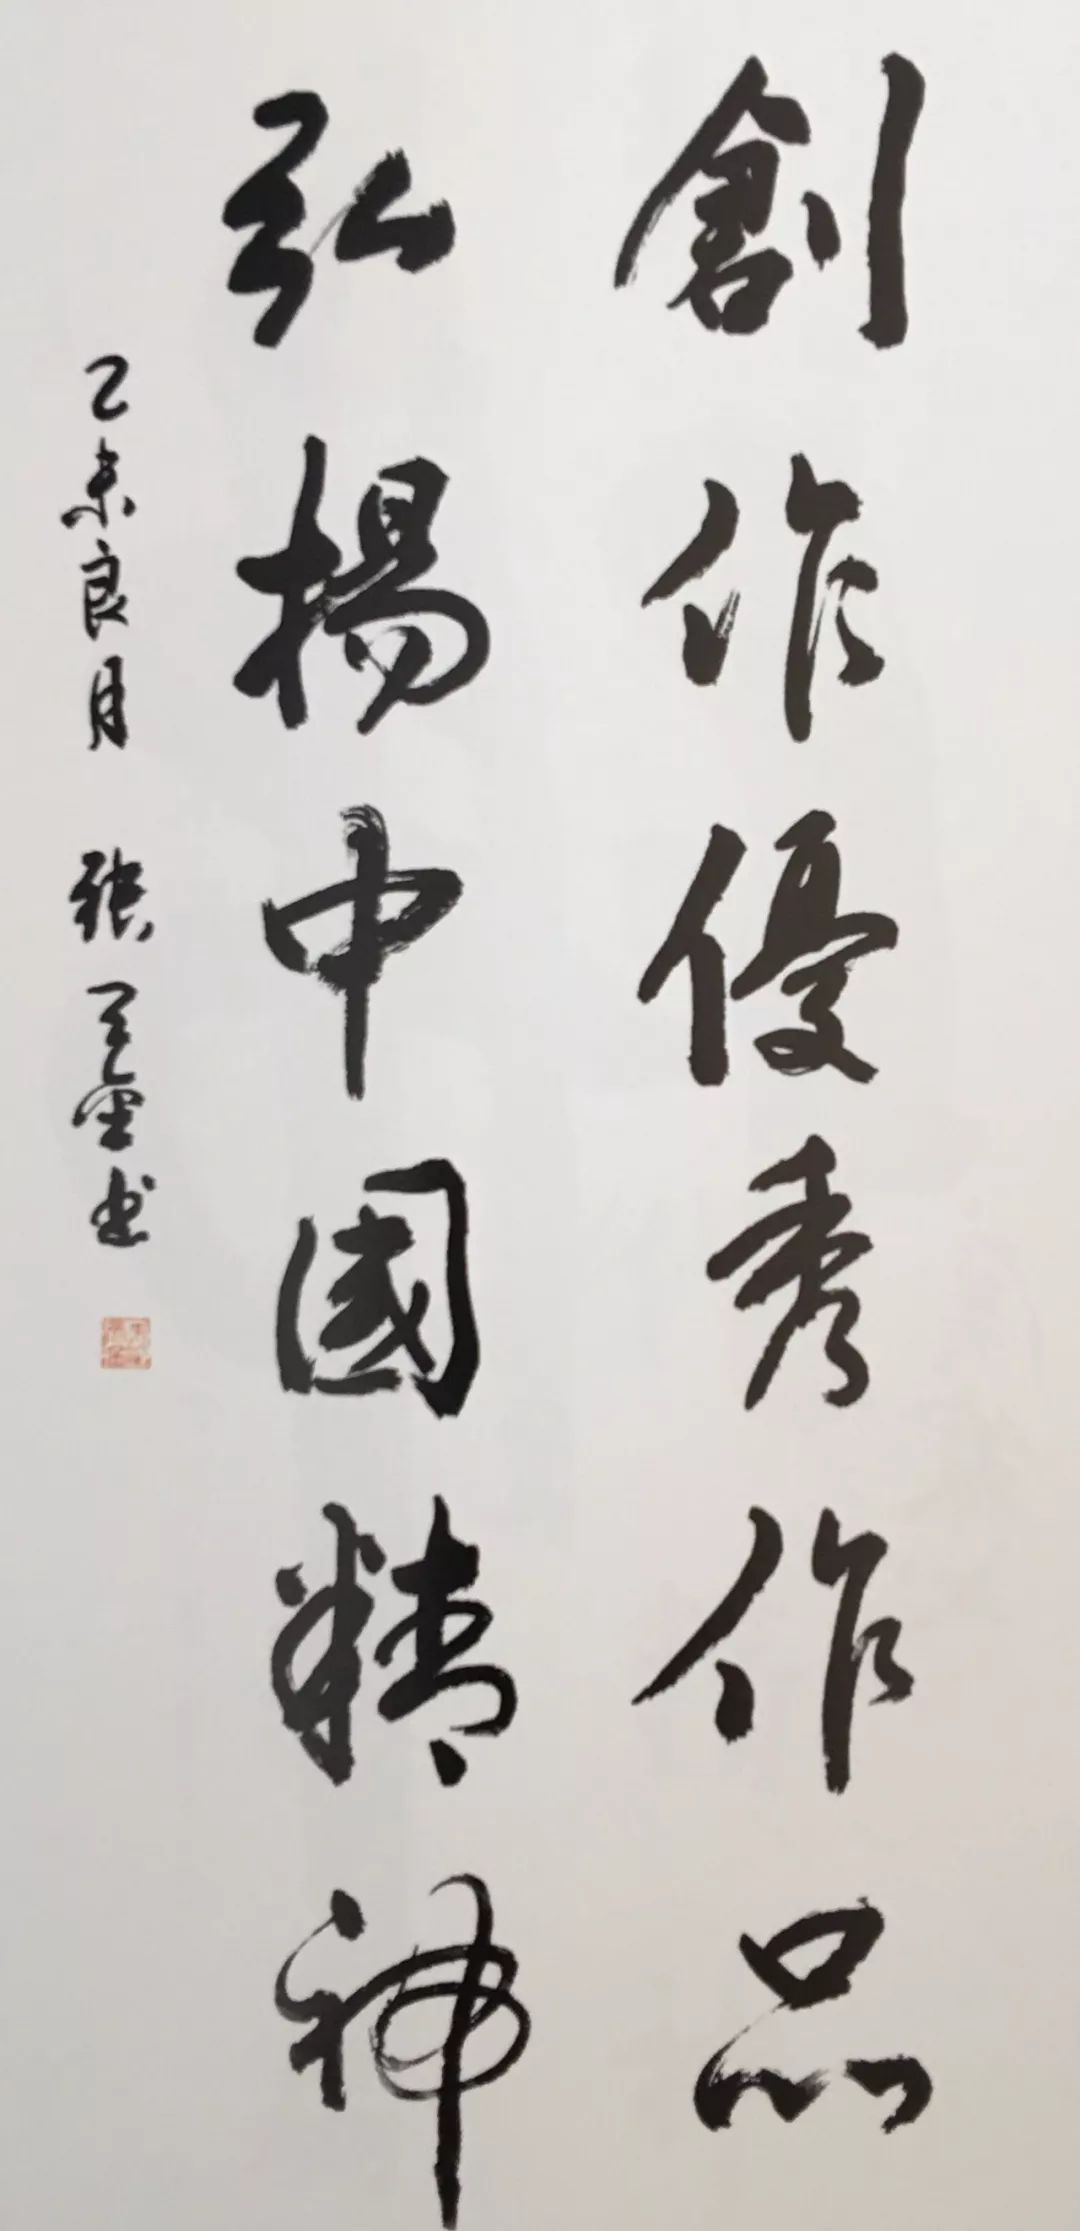 創作優秀作品
弘揚中國精神
乙未良月 張書